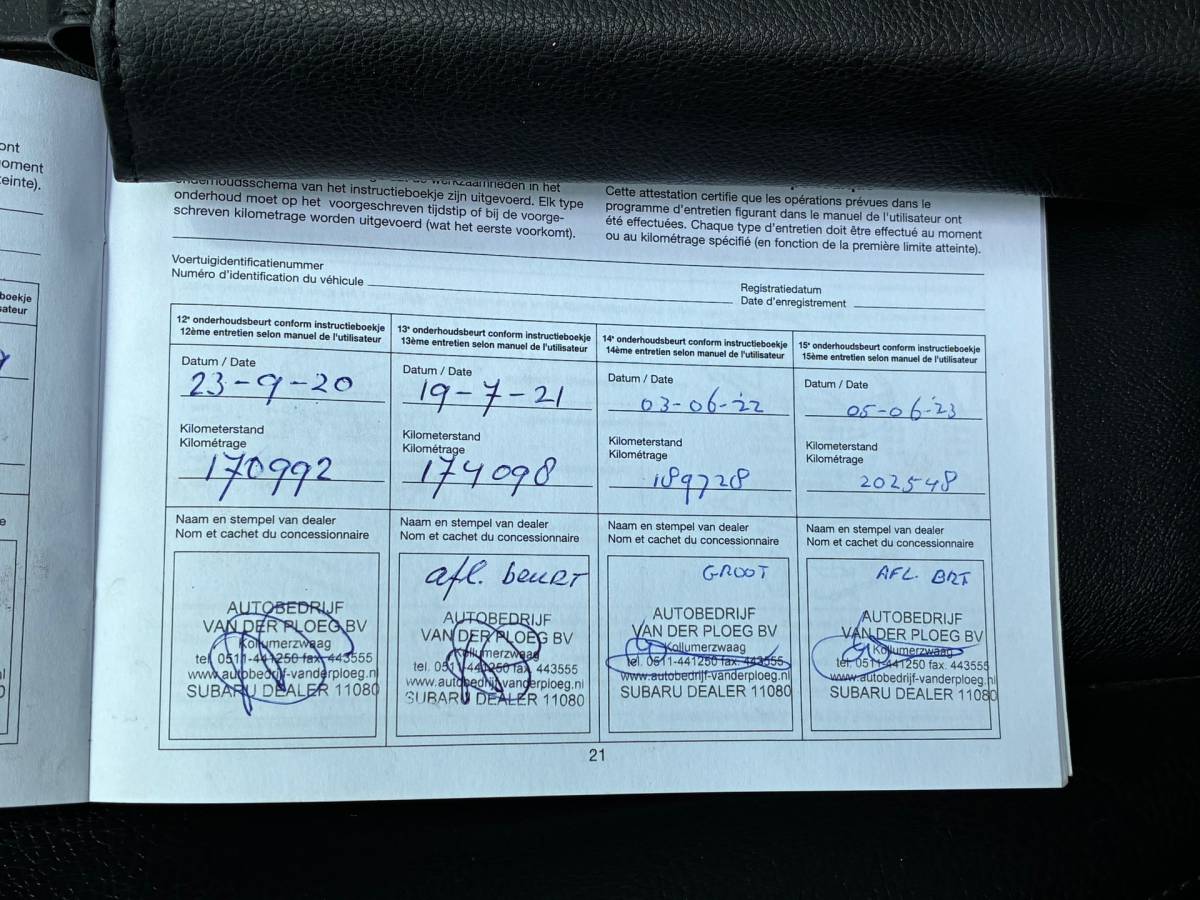 ont
oment
einte).
boekje
sateur
e
onderhoudsschema van het instructieboekje zijn uitgevoerd. Elk type
onderhoud moet op het voorgeschreven tijdstip of bij de voorge-
schreven kilometrage worden uitgevoerd (wat het eerste voorkomt).
Cette attestation certifie que les opérations prévues dans le
programme d'entretien figurant dans le manuel de l'utilisateur ont
été effectuées. Chaque type d'entretien doit être effectué au moment
ou au kilométrage spécifié (en fonction de la première limite atteinte).
Voertuigidentificatienummer
Numéro d'identification du véhicule
Registratiedatum
Date d'enregistrement
12e onderhoudsbeurt conform instructieboekje
12ème entretien selon manuel de l'utilisateur
Datum / Date
23-9-20
Kilometerstand
Kilométrage
170992
Naam en stempel van dealer
Nom et cachet du concessionnaire
AUTOBEDRIJF
VAN DER PLOEG BV
Kollumerzwaag
tel. 0511-441250 fax. 443555
www.autobedrijf-vanderploeg.nl
SUBARU DEALER 11080
13e onderhoudsbeurt conform instructieboekje
13ème entretien selon manuel de l'utilisateur
Datum / Date
19-7-21
Kilometerstand
Kilométrage
174098
Naam en stempel van dealer
Nom et cachet du concessionnaire
afl. beurt
AUTOBEDRIJF
VAN DER PLOEG BV
Kollumerzwaag
tel. 0511-441250 fax. 443555
www.autobedrijf-vanderploeg.nl
SUBARU DEALER 11080
14e onderhoudsbeurt conform instructieboekje
14ème entretien selon manuel de l'utilisateur
Datum / Date
03-06-'22
Kilometerstand
Kilométrage
189728
Naam en stempel van dealer
Nom et cachet du concessionnaire
GROOT
AUTOBEDRIJF
VAN DER PLOEG BV
Kollumerzwaag
tel. 0511-441250 fax. 443555
www.autobedrijf-vanderploeg.nl
SUBARU DEALER 11080
15e onderhoudsbeurt conform instructieboekje
15ème entretien selon manuel de l'utilisateur
Datum / Date
05-06-'23
Kilometerstand
Kilométrage
202548
Naam en stempel van dealer
Nom et cachet du concessionnaire
AFL. BRT
AUTOBEDRIJF
VAN DER PLOEG BV
Kollumerzwaag
tel. 0511-441250 fax. 443555
www.autobedrijf-vanderploeg.nl
SUBARU DEALER 11080
21